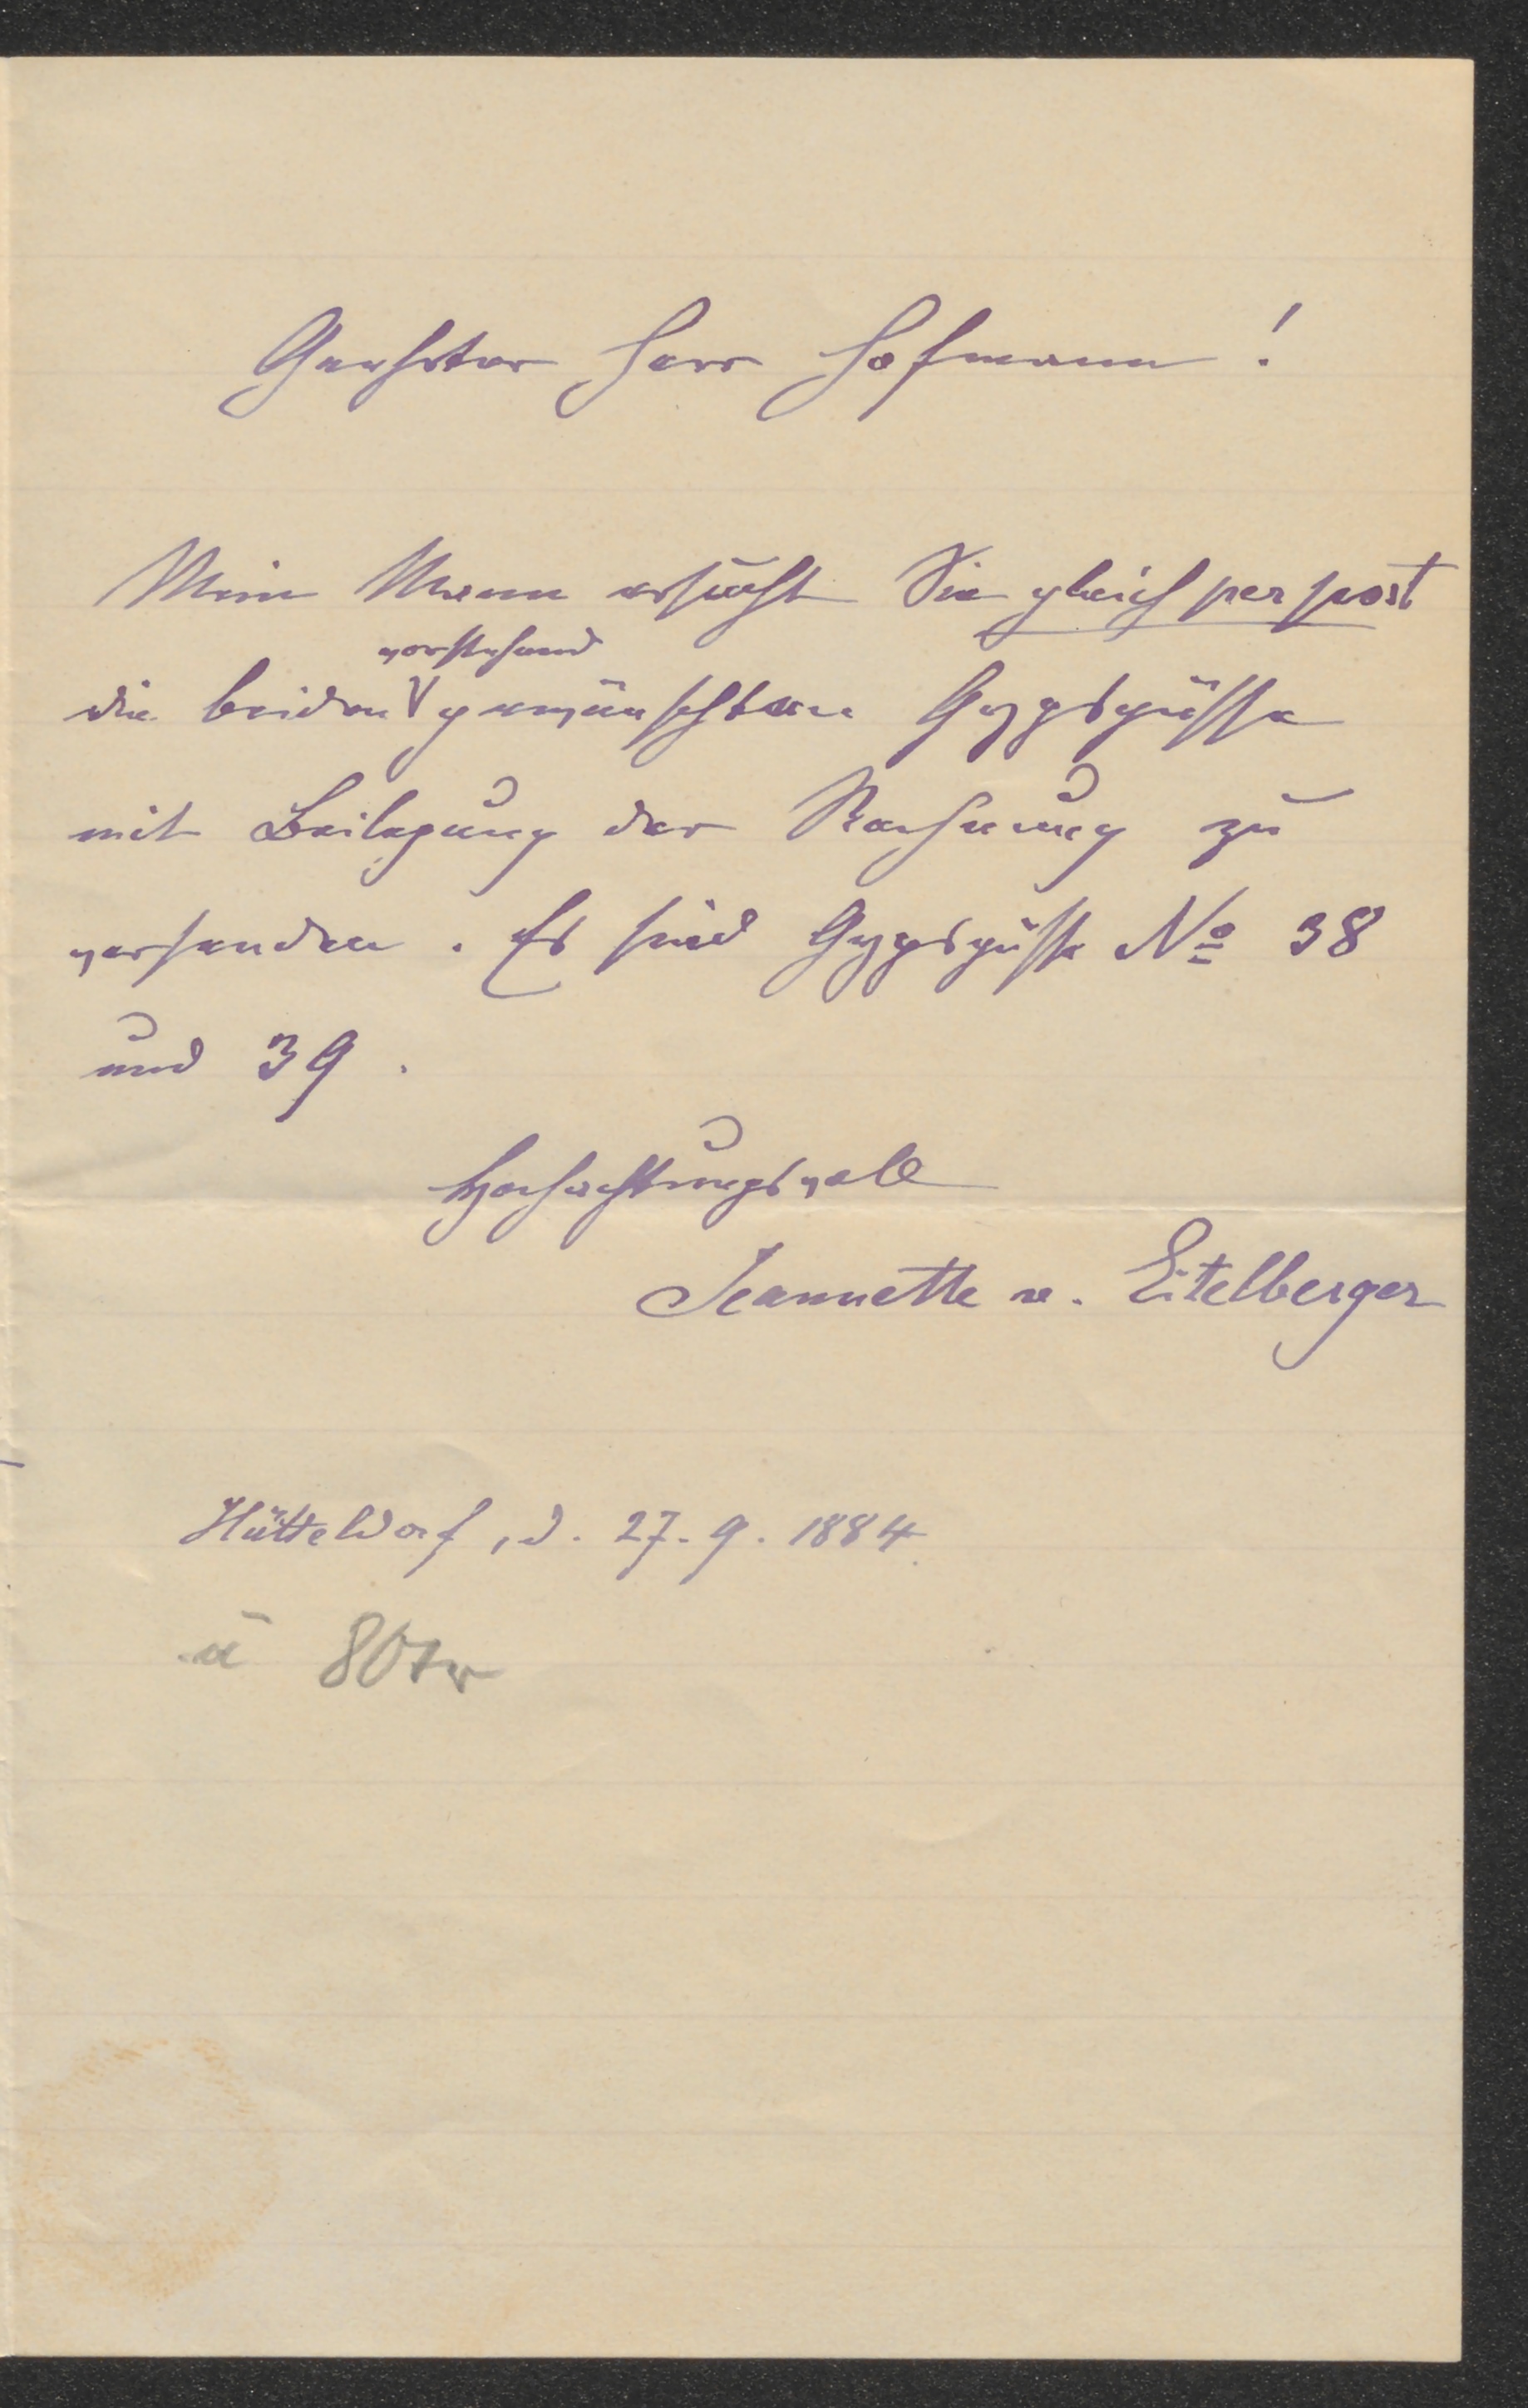 Geehrter Herr Hofmann!
Mein Mann ersucht Sie gleich per post
vorstehend
die beiden gewünschten Gypsgüsse
mit Beilegung der Rechnung zu
versenden. Es sind Gypsgüsse № 38
und 39.
Hochachtungsvoll
Jeannette v. Eitelberger
Hütteldorf, d. 27. 9. 1884.
à 80 kr